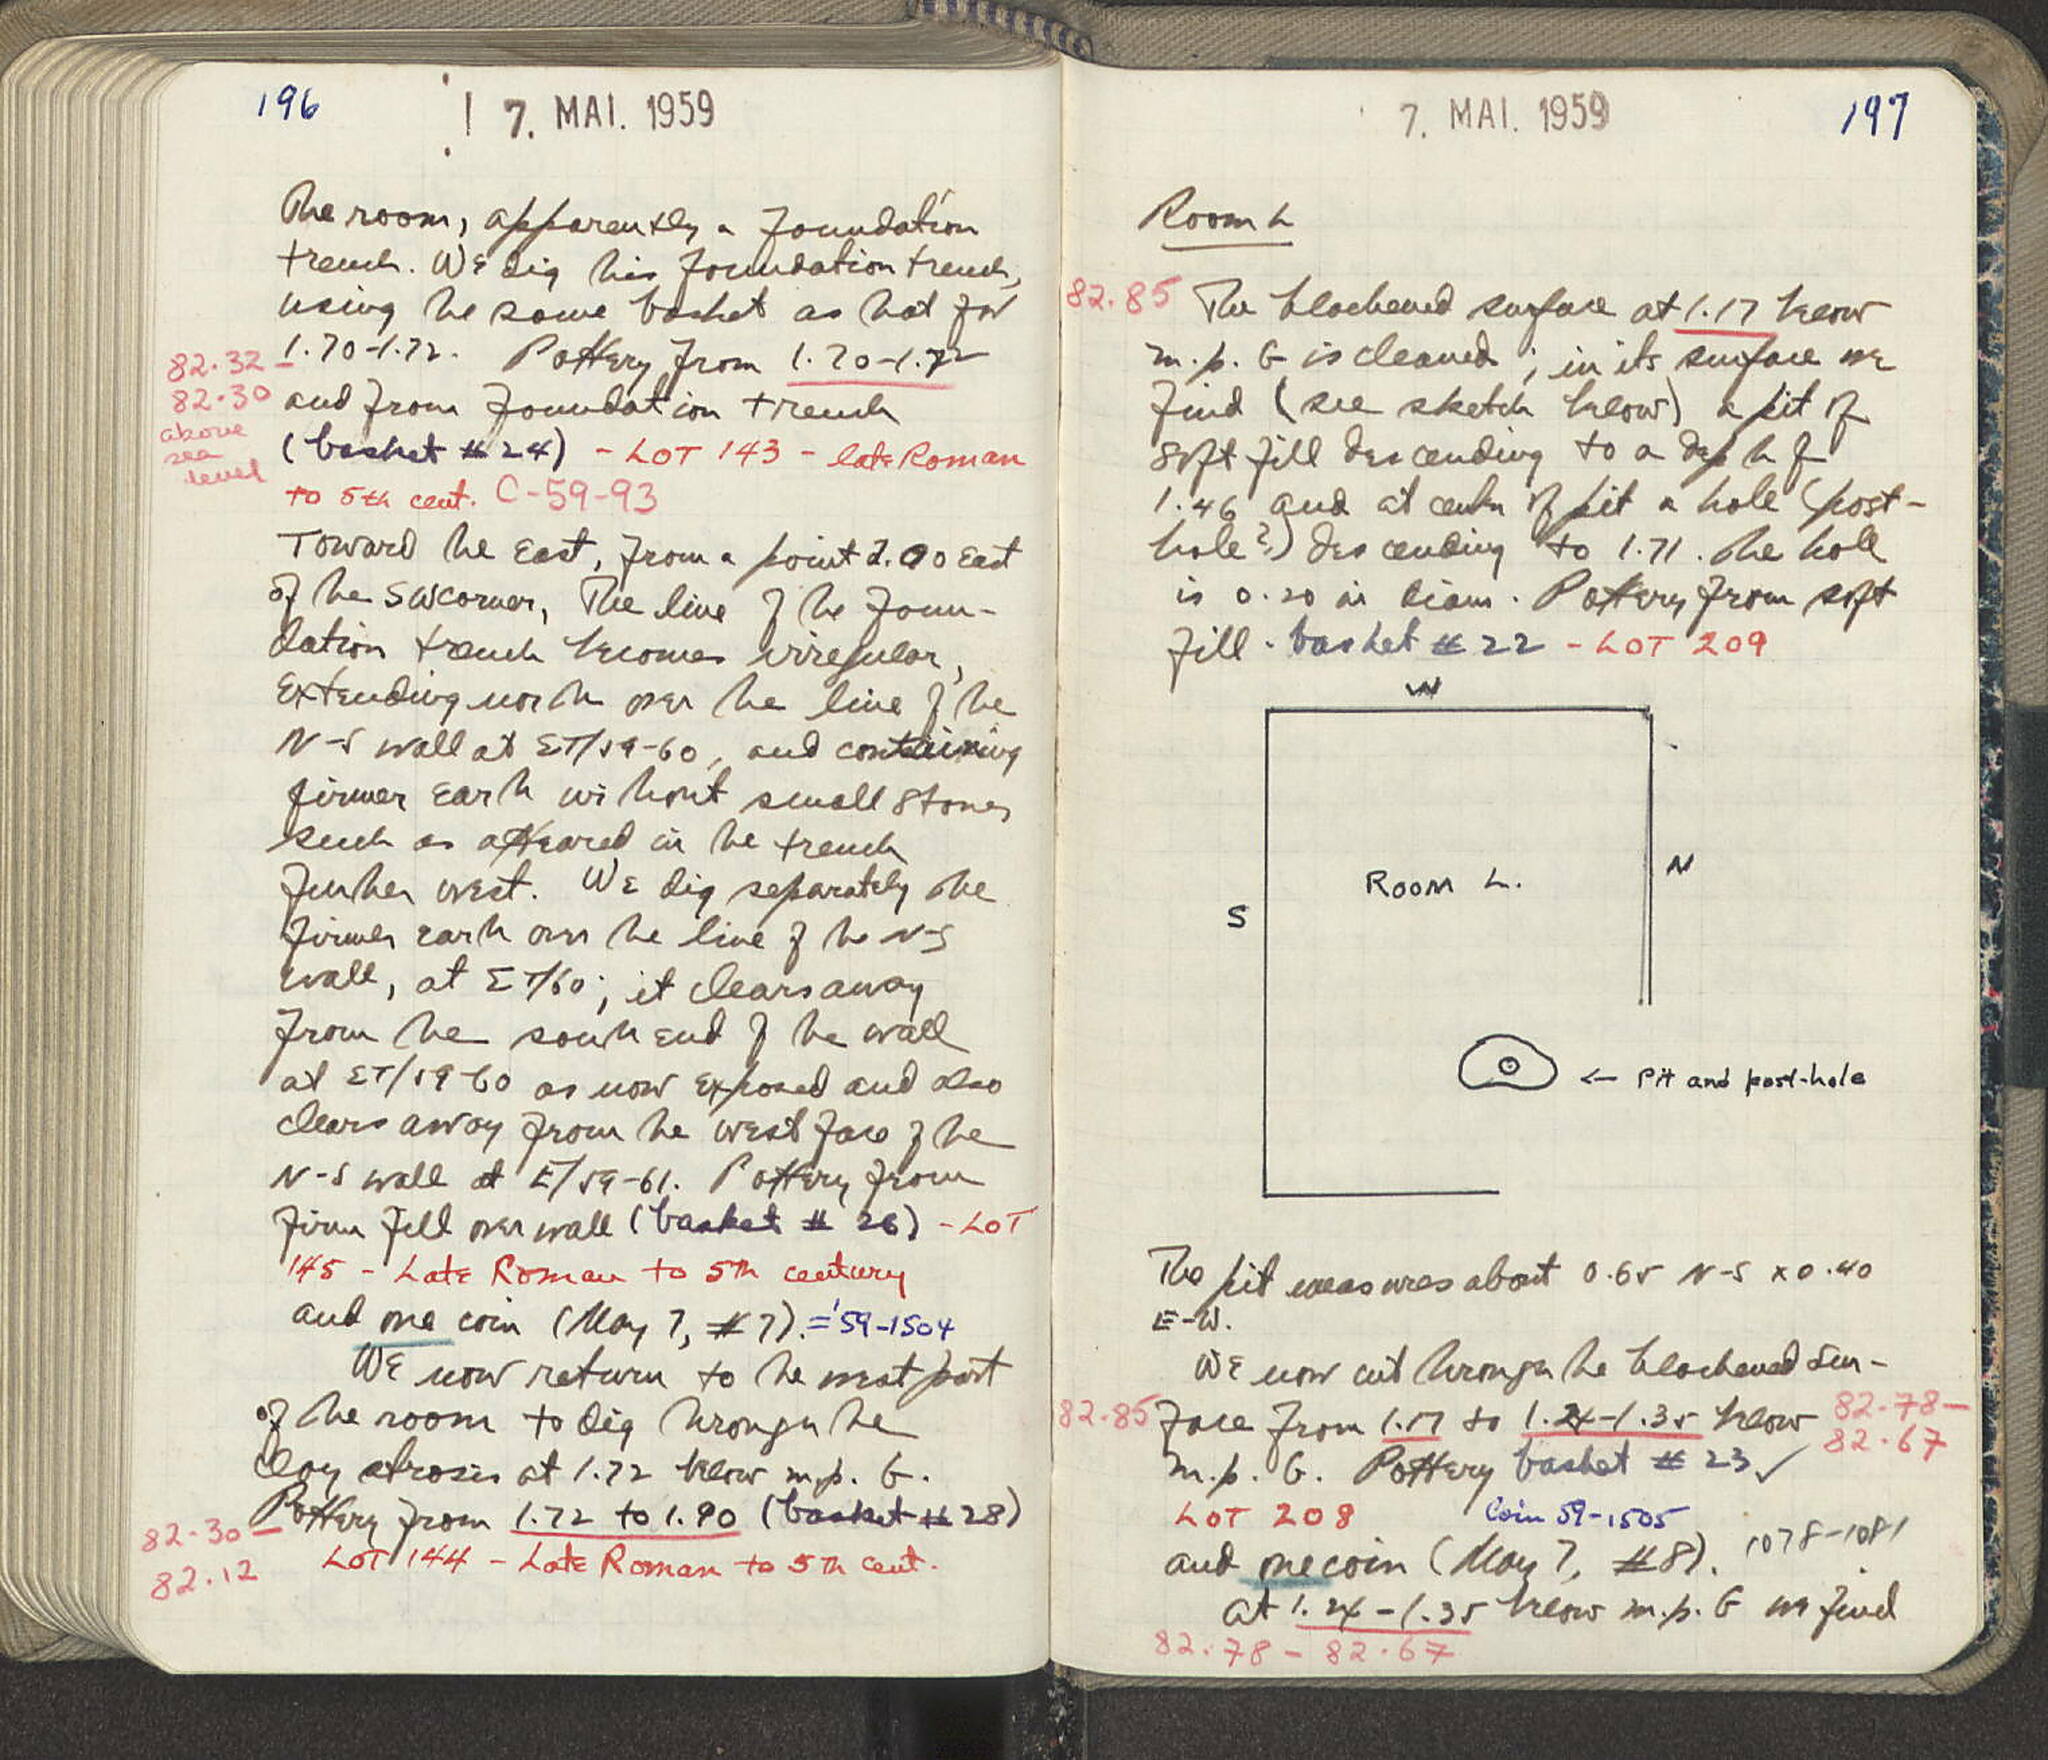 196
! 7. MAI. 1959
The room, apparently a foundation
trench. We dig this foundation trench,
using the same basket as that for
82.32 – 1.70-1.72. Pottery from 1.70-1.72
82.30 and from foundation trench
above
sea
level
(basket # 24) - LOT 143 - late Roman
to 5th cent. C-59-93
Toward the East, from a point 2.00 East
of the SW corner, The line of the foun-
dation trench becomes irregular,
extending north over the line of the
N-S wall at ΣΤ/59-60, and containing
firmer earth without small stones
such as appeared in the trench
further west. We dig separately the
firmer earth over the line of the N-S
wall, at ΣΤ/60; it clears away
from the south end of the wall
at ΣΤ/59-60 as now exposed and also
clears away from the west face of the
N-S wall at E/59-61. Pottery from
firm fill over wall (basket # 26) - LOT
145 - Late Roman to 5th century
and one coin (May 7, #7). = '59-1504
We now return to the west part
of the room to dig through the
clay stroses at 1.72 below m.p. G.
Pottery from 1.72 to 1.90 (basket # 28)
82.30 –
82.12
LOT 144 - Late Roman to 5th cent.
7. MAI. 1959
197
Room L
82.85 The blackened surface at 1.17 below
m.p. G is cleaned; in its surface we
find (see sketch below) a pit of
soft fill descending to a depth of
1.46 and at center of pit a hole (post-
hole?) descending to 1.71. The hole
is 0.20 in diam. Pottery from soft
fill. basket # 22 - LOT 209
W
N
Room L.
S
← Pit and post-hole
The pit measures about 0.65 N-S x 0.40
E-W.
We now cut through the blackened sur-
82.85 face from 1.17 to 1.24-1.35 below 82.78 –
82.67
m.p. G. Pottery basket # 23 ✓
LOT 208 Coin 59-1505
and one coin (May 7, #8). 1078-1081
at 1.24-1.35 below m.p. G we find
82.78 - 82.67